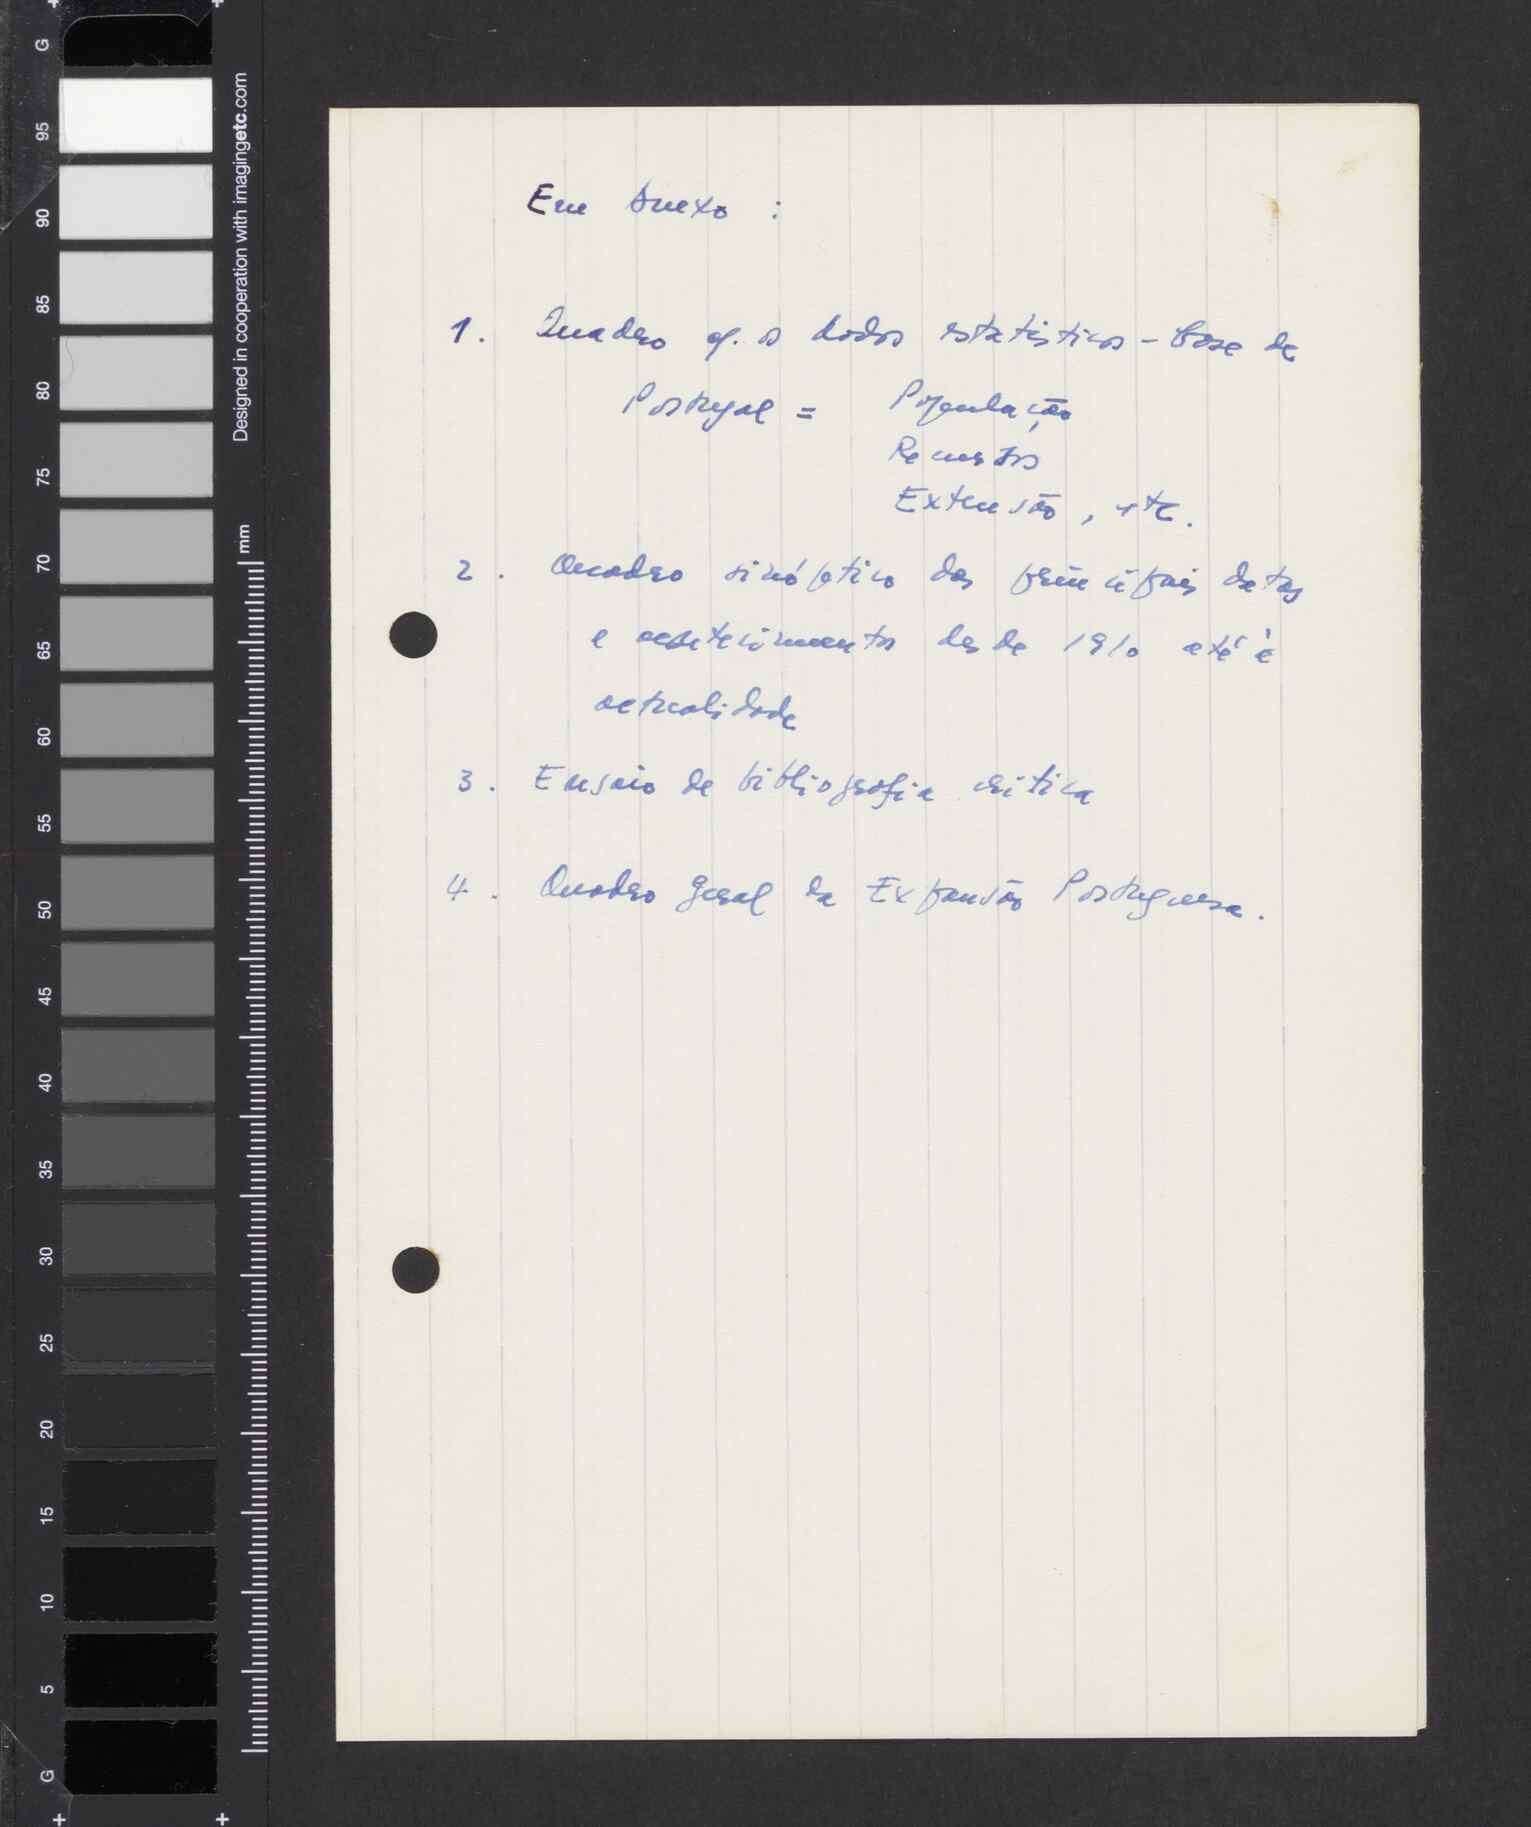 Em Anexo :
1. Quadro c/. os dados estatísticos - base de
Portugal = População
Recursos
Extensão, etc.
2. Quadro sinóptico das principais datas
e acontecimentos desde 1910 até à
actualidade
3. Ensaio de bibliografia crítica
4. Quadro geral da Expansão Portuguesa.
Designed in cooperation with imagingetc.com
mm
G
95
90
85
80
75
70
65
60
55
50
45
40
35
30
25
20
15
10
5
G